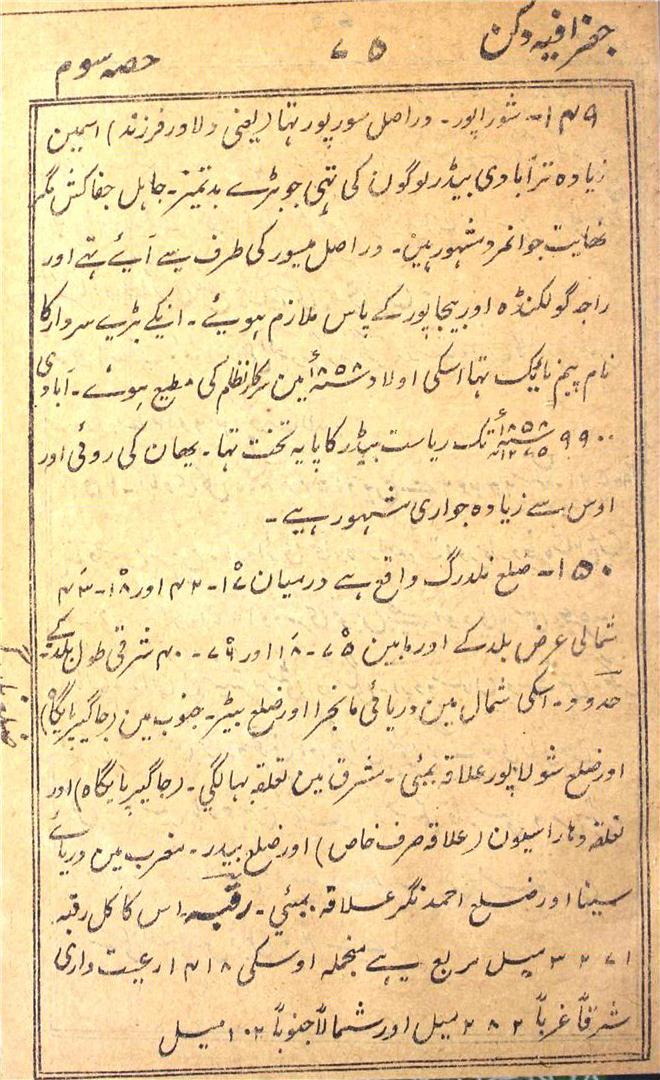 جغرافیہ دکن ۷۵ حصہ سوم
۱۴۹- شوراپور۔ دراصل سورپور تہا (یعنی دلاور فرزند) اسمین
زیادہ تر آبادی بیڈر لوگون کی تہی جو بڑے بدتمیز۔ جاہل جفاکش مگر
نہایت جوانمرد مشہور ہین۔ دراصل میسور کی طرف سے آئے تہے اور
راجہ گولکنڈہ اور بیجاپور کے پاس ملازم ہوئے۔ انکے بڑے سردار کا
نام پیم نایک تہا اسکی اولاد ۱۸۵۸ء مین سرکار نظام کی مطیع ہوئے۔ آبادی
۹۹۰۰ ۱۸۵۸ء ۱۲۷۵ تک ریاست بیڈر کا پایہ تخت تہا۔ یہان کی روئی اور
اوس سے زیادہ جواری مشہور ہے۔
۱۵۰- ضلع نلدرگ واقع ہے درمیان ۱۷- ۴۲ اور ۱۸- ۴۳
شمالی عرض بلد کے اور مابین ۷۵- ۱۸ اور ۷۶- ۴۰ شرقی طول بلد کے
حدود۔ اسکی شمال مین دریائی مانجرا اور ضلع بیڑ۔ جنوب مین (جاگیر پایگاہ)
اور ضلع شولاپور علاقہ بمبئی۔ مشرق مین تعلقہ بہالکی۔ (جاگیر پایگاہ) اور
تعلقہ دہاراسیون (علاقہ صرف خاص) اور ضلع بیدر۔ مغرب مین دریائے
سینا اور ضلع احمد نگر علاقہ بمبئی۔ رقبہ۔ اس کا کل رقبہ
۳۲۷۱ میل مربع ہے منجملہ اوسکی ۱۴۱۸ رعیت واری
شرقاً غرباً ۲۸۲ میل اور شمالاً جنوباً ۱۰۲ میل